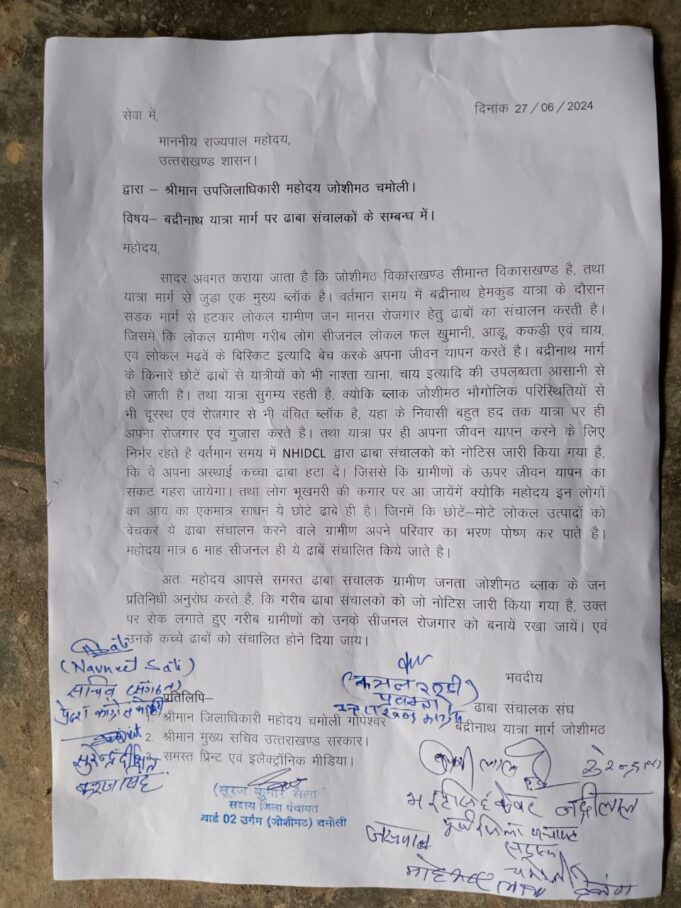 दिनांक 27/06/2024
सेवा में,
माननीय राज्यपाल महोदय,
उत्तराखण्ड शासन।
द्वारा – श्रीमान उपजिलाधिकारी महोदय जोशीमठ चमोली।
विषय– बद्रीनाथ यात्रा मार्ग पर ढाबा संचालकों के सम्बन्ध में।
महोदय,
सादर अवगत कराया जाता है कि जोशीमठ विकासखण्ड सीमान्त विकासखण्ड है, तथा
यात्रा मार्ग से जुड़ा एक मुख्य ब्लॉक है। वर्तमान समय में बद्रीनाथ हेमकुंड यात्रा के दौरान
सड़क मार्ग से हटकर लोकल ग्रामीण जन मानस रोजगार हेतु ढाबों का संचालन करती है।
जिसमें कि लोकल ग्रामीण गरीब लोग सीजनल लोकल फल खुमानी, आडू, ककडी एवं चाय,
एवं लोकल मढवें के बिस्किट इत्यादि बेच करके अपना जीवन यापन करतें है। बद्रीनाथ मार्ग
के किनारें छोटें ढाबों से यात्रीयों को भी नाश्ता खाना, चाय इत्यादि की उपलब्धता आसानी से
हो जाती है। तथा यात्रा सुगम्य रहती है, क्योकि ब्लाक जोशीमठ भौगोलिक परिस्थितियों से
भी दूरस्थ एवं रोजगार से भी वंचित ब्लॉक है, यहा के निवासी बहुत हद तक यात्रा पर ही
अपना रोजगार एवं गुजारा करते है। तथा यात्रा पर ही अपना जीवन यापन करने के लिए
निर्भर रहते है वर्तमान समय में NHIDCL द्वारा ढाबा संचालको को नोटिस जारी किया गया है,
कि वे अपना अस्थाई कच्चा ढाबा हटा दें। जिससे कि ग्रामीणों के ऊपर जीवन यापन का
संकट गहरा जायेगा। तथा लोग भूखमरी की कगार पर आ जायेंगें क्योकि महोदय इन लोगों
का आय का एकमात्र साधन ये छोटे ढाबे ही है। जिनमें कि छोटें–मोटे लोकल उत्पादों को
बेचकर ये ढाबा संचालन करने वाले ग्रामीण अपने परिवार का भरण पोष्ण कर पाते है।
महोदय मात्र 6 माह सीजनल ही ये ढाबें संचालित किये जाते है।
अतः महोदय आपसे समस्त ढाबा संचालक ग्रामीण जनता जोशीमठ ब्लाक के जन
प्रतिनिधी अनुरोध करते है, कि गरीब ढाबा संचालको को जो नोटिस जारी किया गया है, उक्त
पर रोक लगाते हुए गरीब ग्रामीणों को उनके सीजनल रोजगार को बनायें रखा जायें। एवं
उनके कच्चे ढाबों को संचालित होने दिया जाय।
(Navneet Sati)
सचिव (संगठन)
भवदीय
ढाबा संचालक संघ
बद्रीनाथ यात्रा मार्ग जोशीमठ
प्रतिलिपि–
श्रीमान जिलाधिकारी महोदय चमोली गोपेश्वर
2. श्रीमान मुख्य सचिव उत्तराखण्ड सरकार।
3. समस्त प्रिन्ट एवं इलैक्ट्रॉनिक मीडिया।
(सूरज कुमार सैला
सदस्य जिला पंचायत
वार्ड 02 उर्गम (जोशीमठ) चमोली